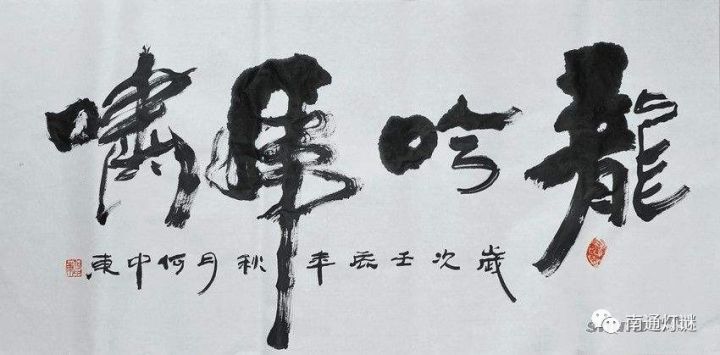 龍吟虎嘯
歲次壬辰年秋月何中東
南通灯谜